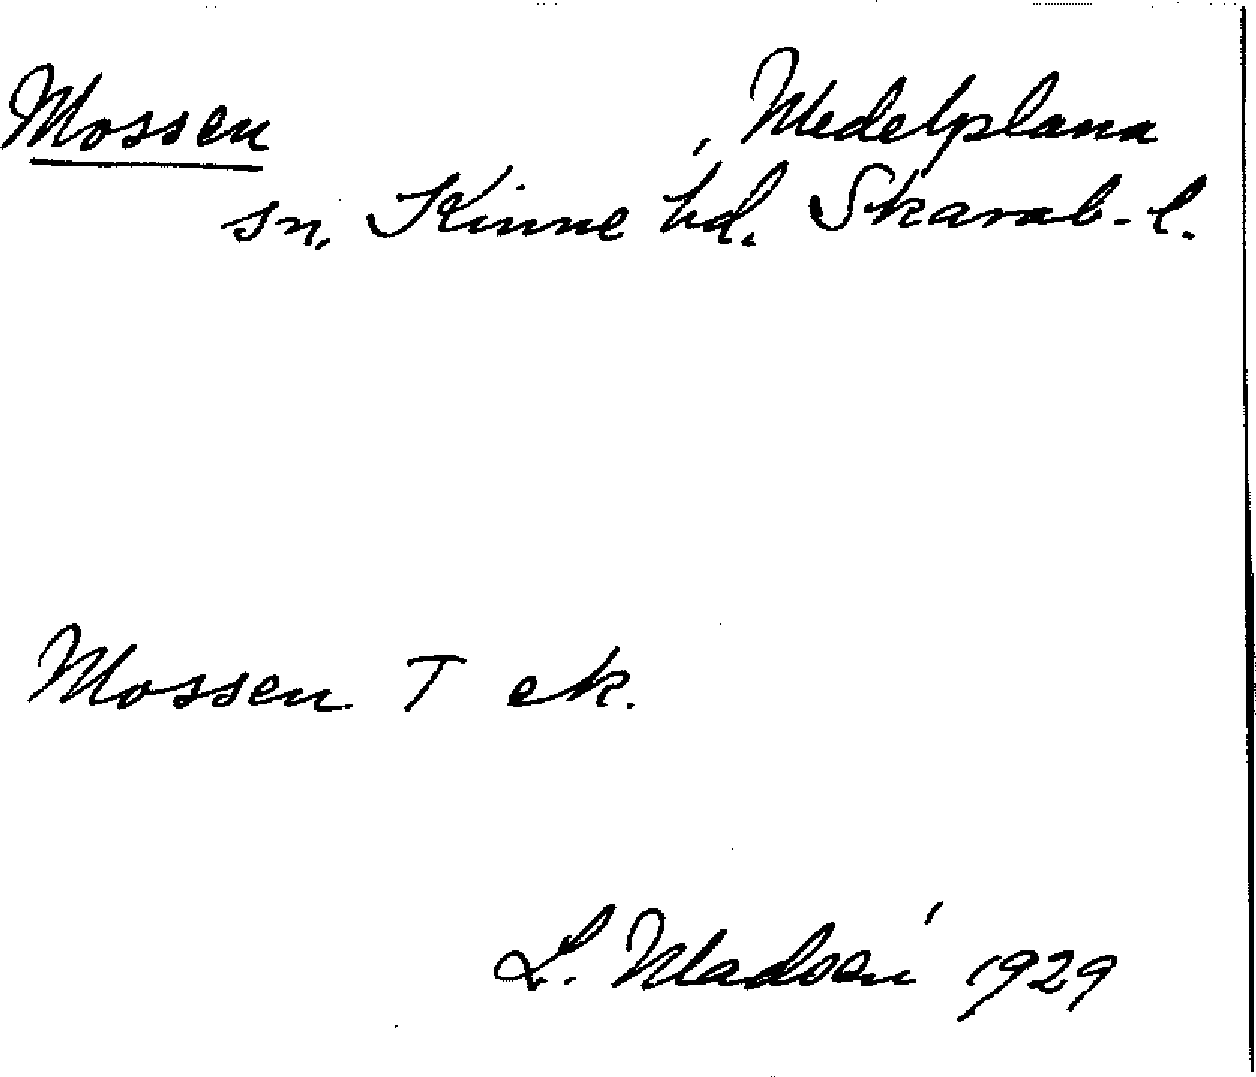 Mossen , Medelplana
sn, Kinne hd. Skarab-l.
Mossen T ek.
L. Madsén 1929